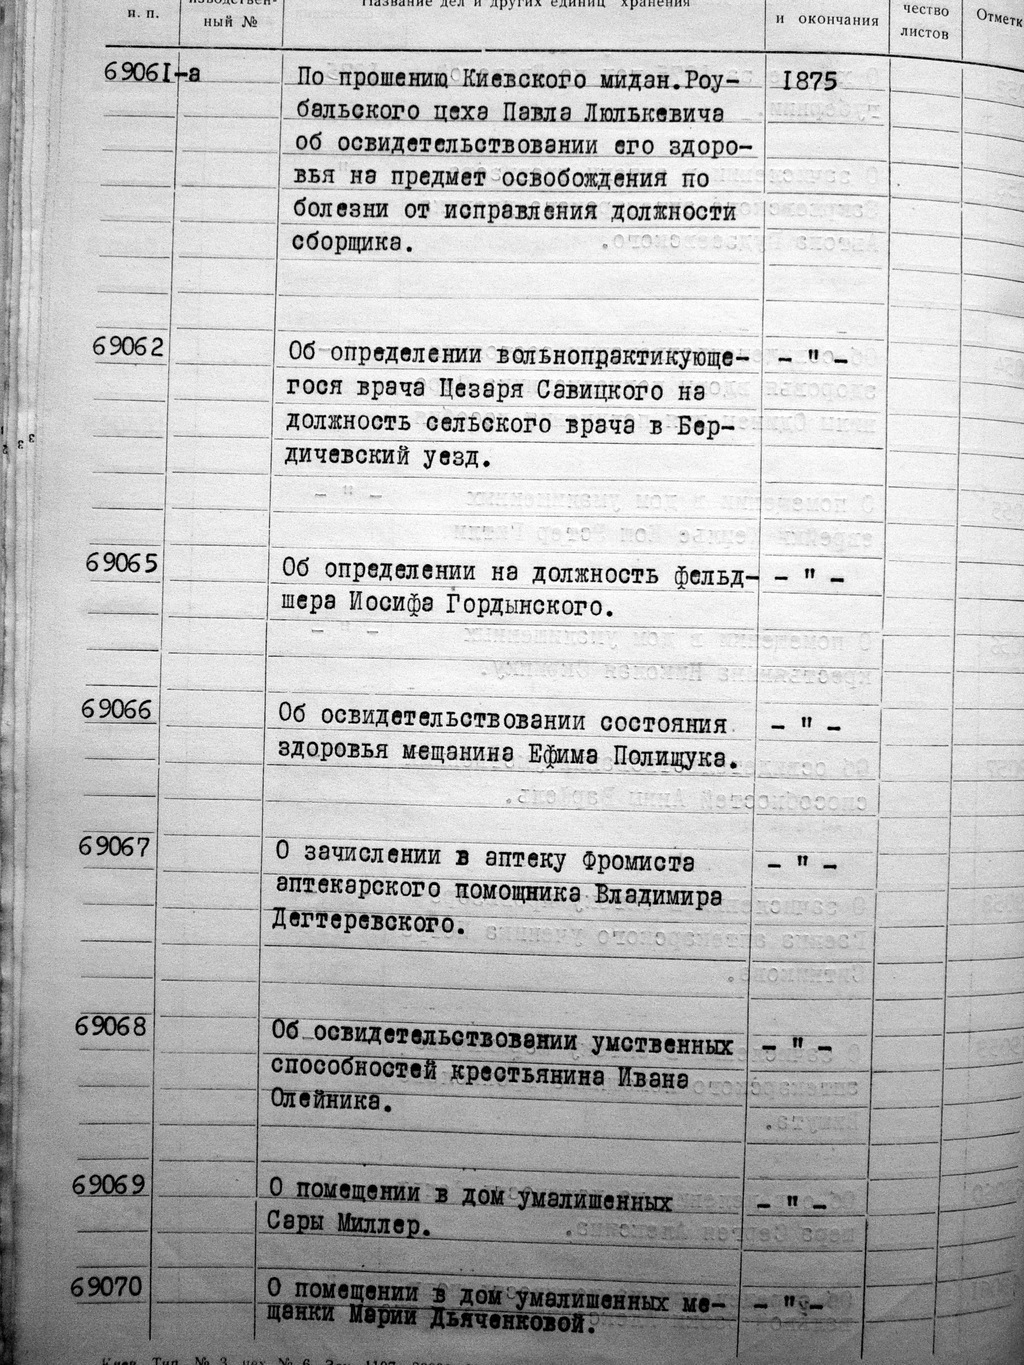 н. п.
ный №
Название дел и других единиц хранения
и окончания
чество
листов
Отметк
69061-а По прошению Киевского мидан.Роу- 1875
бальского цеха Павла Люлькевича
об освидетельствовании его здоро-
вья на предмет освобождения по
болезни от исправления должности
сборщика.
69062 Об определении вольнопрактикующе- - " -
гося врача Цезаря Савицкого на
должность сельского врача в Бер-
дичевский уезд.
69065 Об определении на должность фельд- - " -
шера Иосифа Гордынского.
69066 Об освидетельствовании состояния - " -
здоровья мещанина Ефима Полищука.
69067 О зачислении в аптеку Фромиста - " -
аптекарского помощника Владимира
Дегтеревского.
69068 Об освидетельствовании умственных - " -
способностей крестьянина Ивана
Олейника.
69069 О помещении в дом умалишенных - " -
Сары Миллер.
69070 О помещении в дом умалишенных ме- - " -
щанки Марии Дьяченковой.